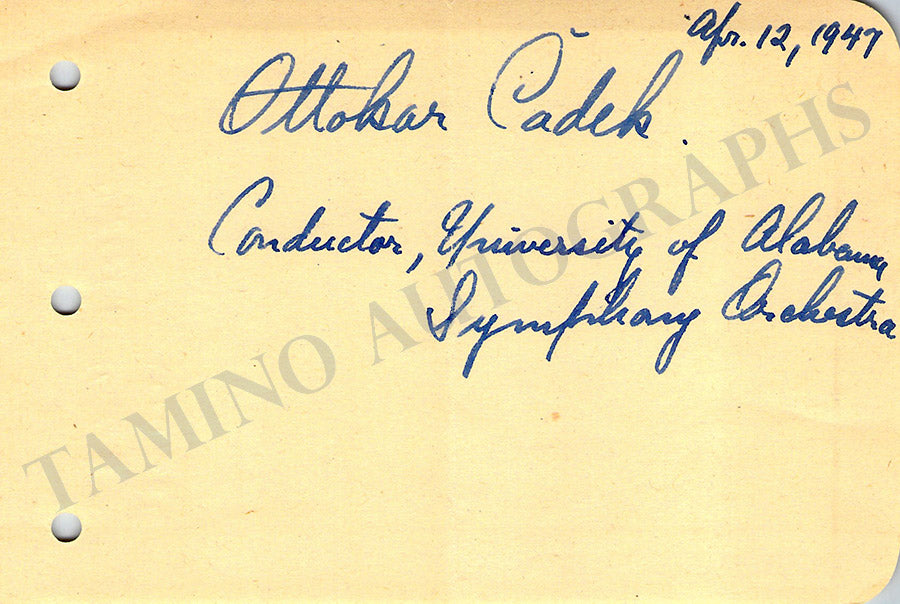 Apr. 12, 1947
Ottokar Čadek
Conductor, University of Alabama
Symphony Orchestra
TAMINO AUTOGRAPHS